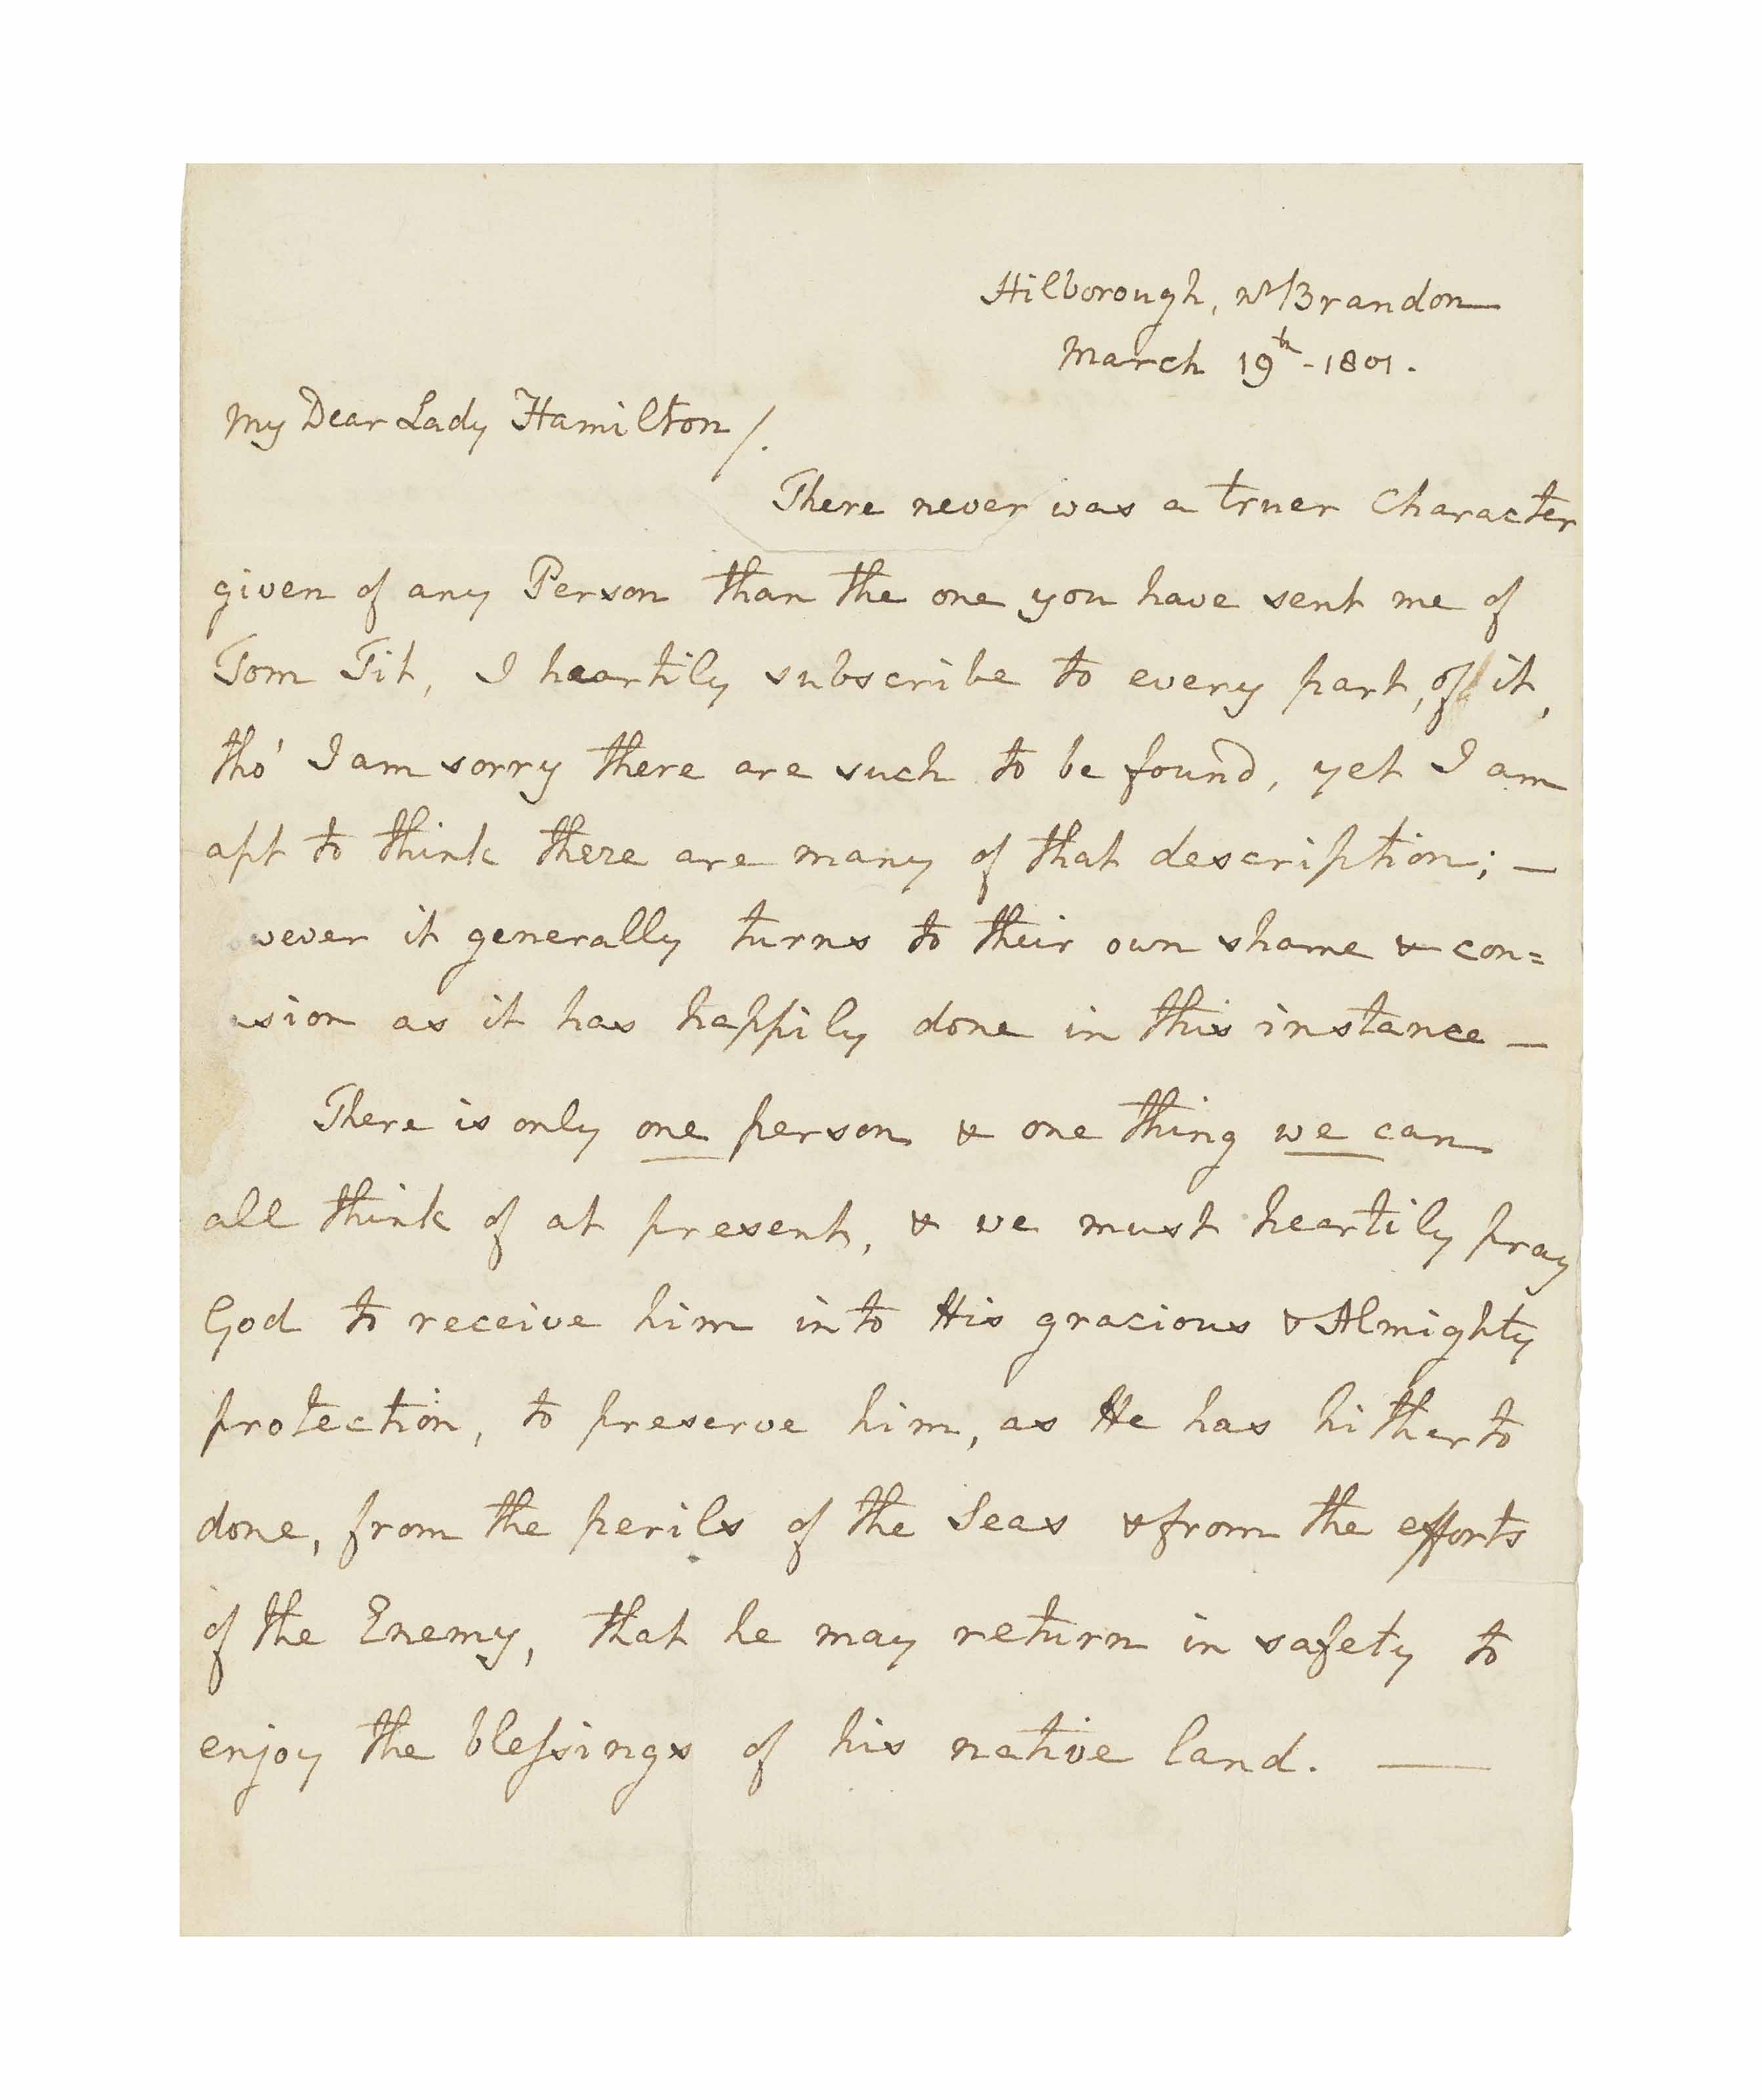 Hilborough, nr Brandon
March 19th - 1801.
My Dear Lady Hamilton/.
There never was a truer Character
given of any Person than the one you have sent me of
Tom Tit, I heartily subscribe to every part, of it,
tho' I am sorry there are such to be found, yet I am
apt to think there are many of that description; —
owever it generally turns to their own shame & con=
usion as it has happily done in this instance —
There is only one person & one thing we can
all think of at present, & we must heartily pray
God to receive him into His gracious & Almighty
protection, to preserve him, as He has hitherto
done, from the perils of the Seas & from the efforts
of the Enemy, that he may return in safety to
enjoy the bleſsings of his native land. —